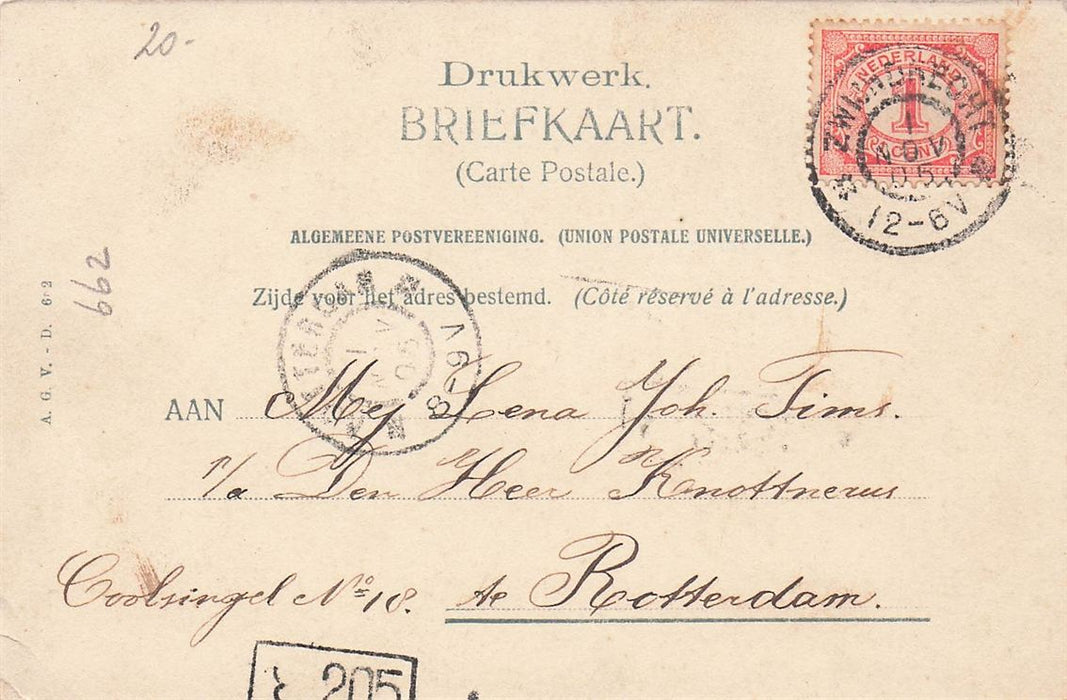 20.-
NEDERLAND
1
ZWIJNDRECHT
1
NOV
05
12-6V
Drukwerk.
BRIEFKAART.
(Carte Postale.)
ALGEMEENE POSTVEREENIGING. (UNION POSTALE UNIVERSELLE.)
Zijde voor het adres bestemd. (Côté réservé à l'adresse.)
8-9V
A. G. V. - D. 62
662
AAN Mej Lena Joh. Tims.
p/a Den Heer Knottnerus
Coolsingel No 18. te Rotterdam.
205